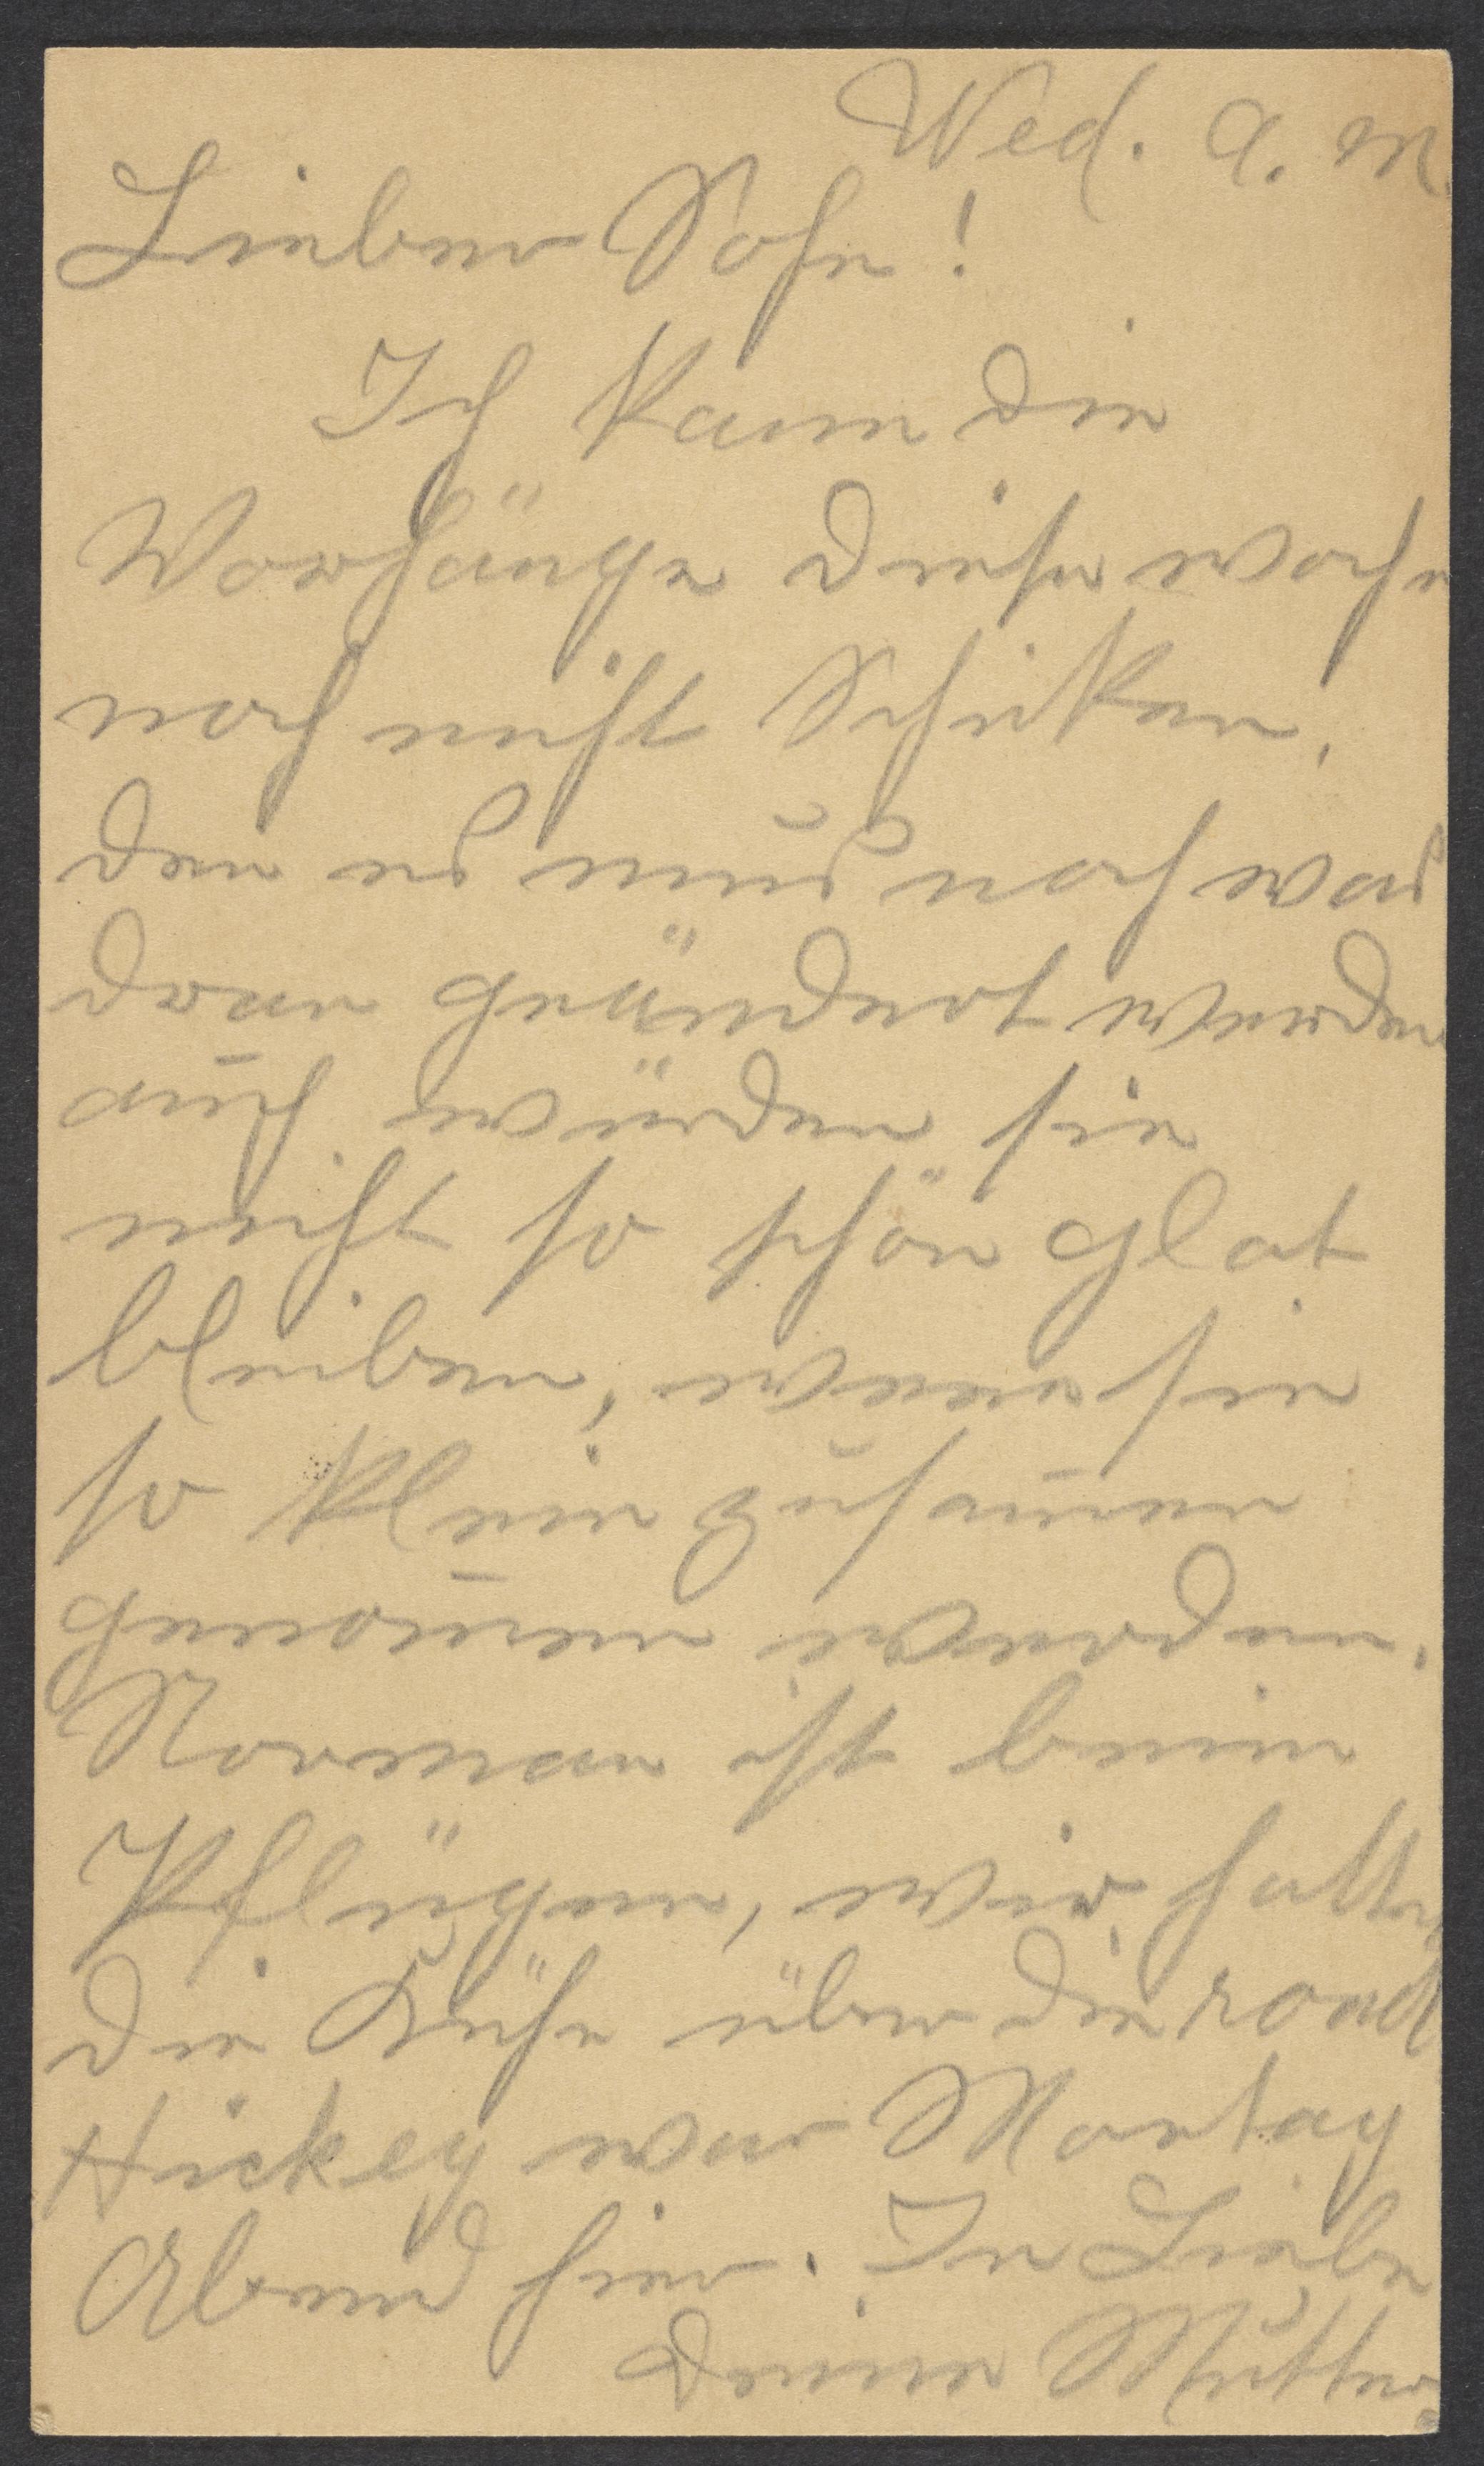 Wed. A. M.
Lieber Sohn!
Ich kann die
Vorhänge diese woche
noch nicht Schiken,
den es mus noch was
dran geändert werden
auch würden sie
nicht so schön glat
bleiben, wenn sie
so klein zusam̅en
genom̅en werden.
Norman ist beim
Pflügen, wir hatten
die Kühe über die road
Hickey war Montag
Abend hier. In Liebe
Deine Mutter